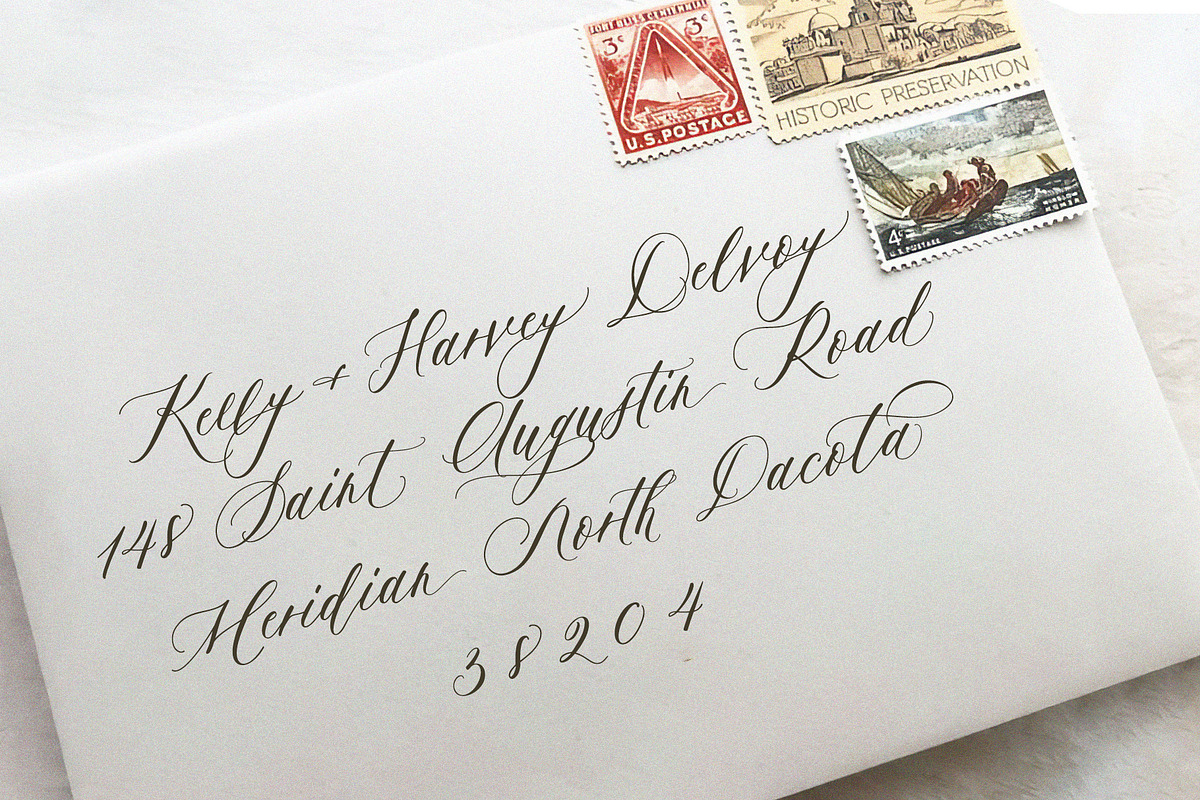 FORT BLISS CENTENNIAL
3c 3c
U.S. POSTAGE
HISTORIC PRESERVATION
WINSLOW
HOMER
4c
U.S. POSTAGE
Kelly + Harvey Delvoy
148 Saint Augustin Road
Meridian North Dacota
38204